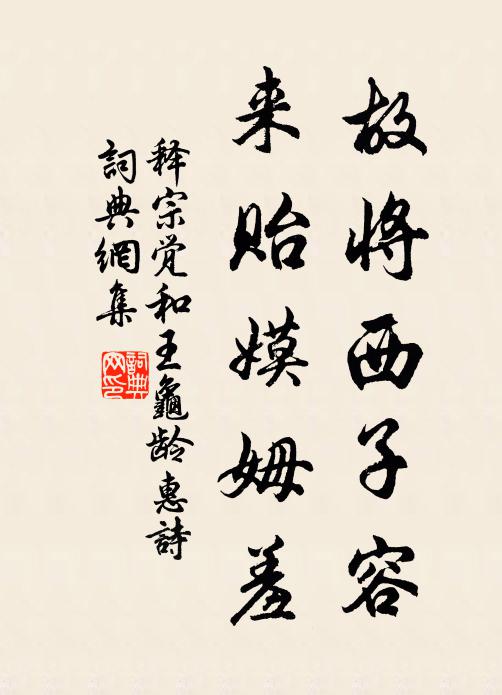 故将西子容
来贻嫫姆羞
释宗觉和王龜龄惠詩
詞典網集
詞典网印